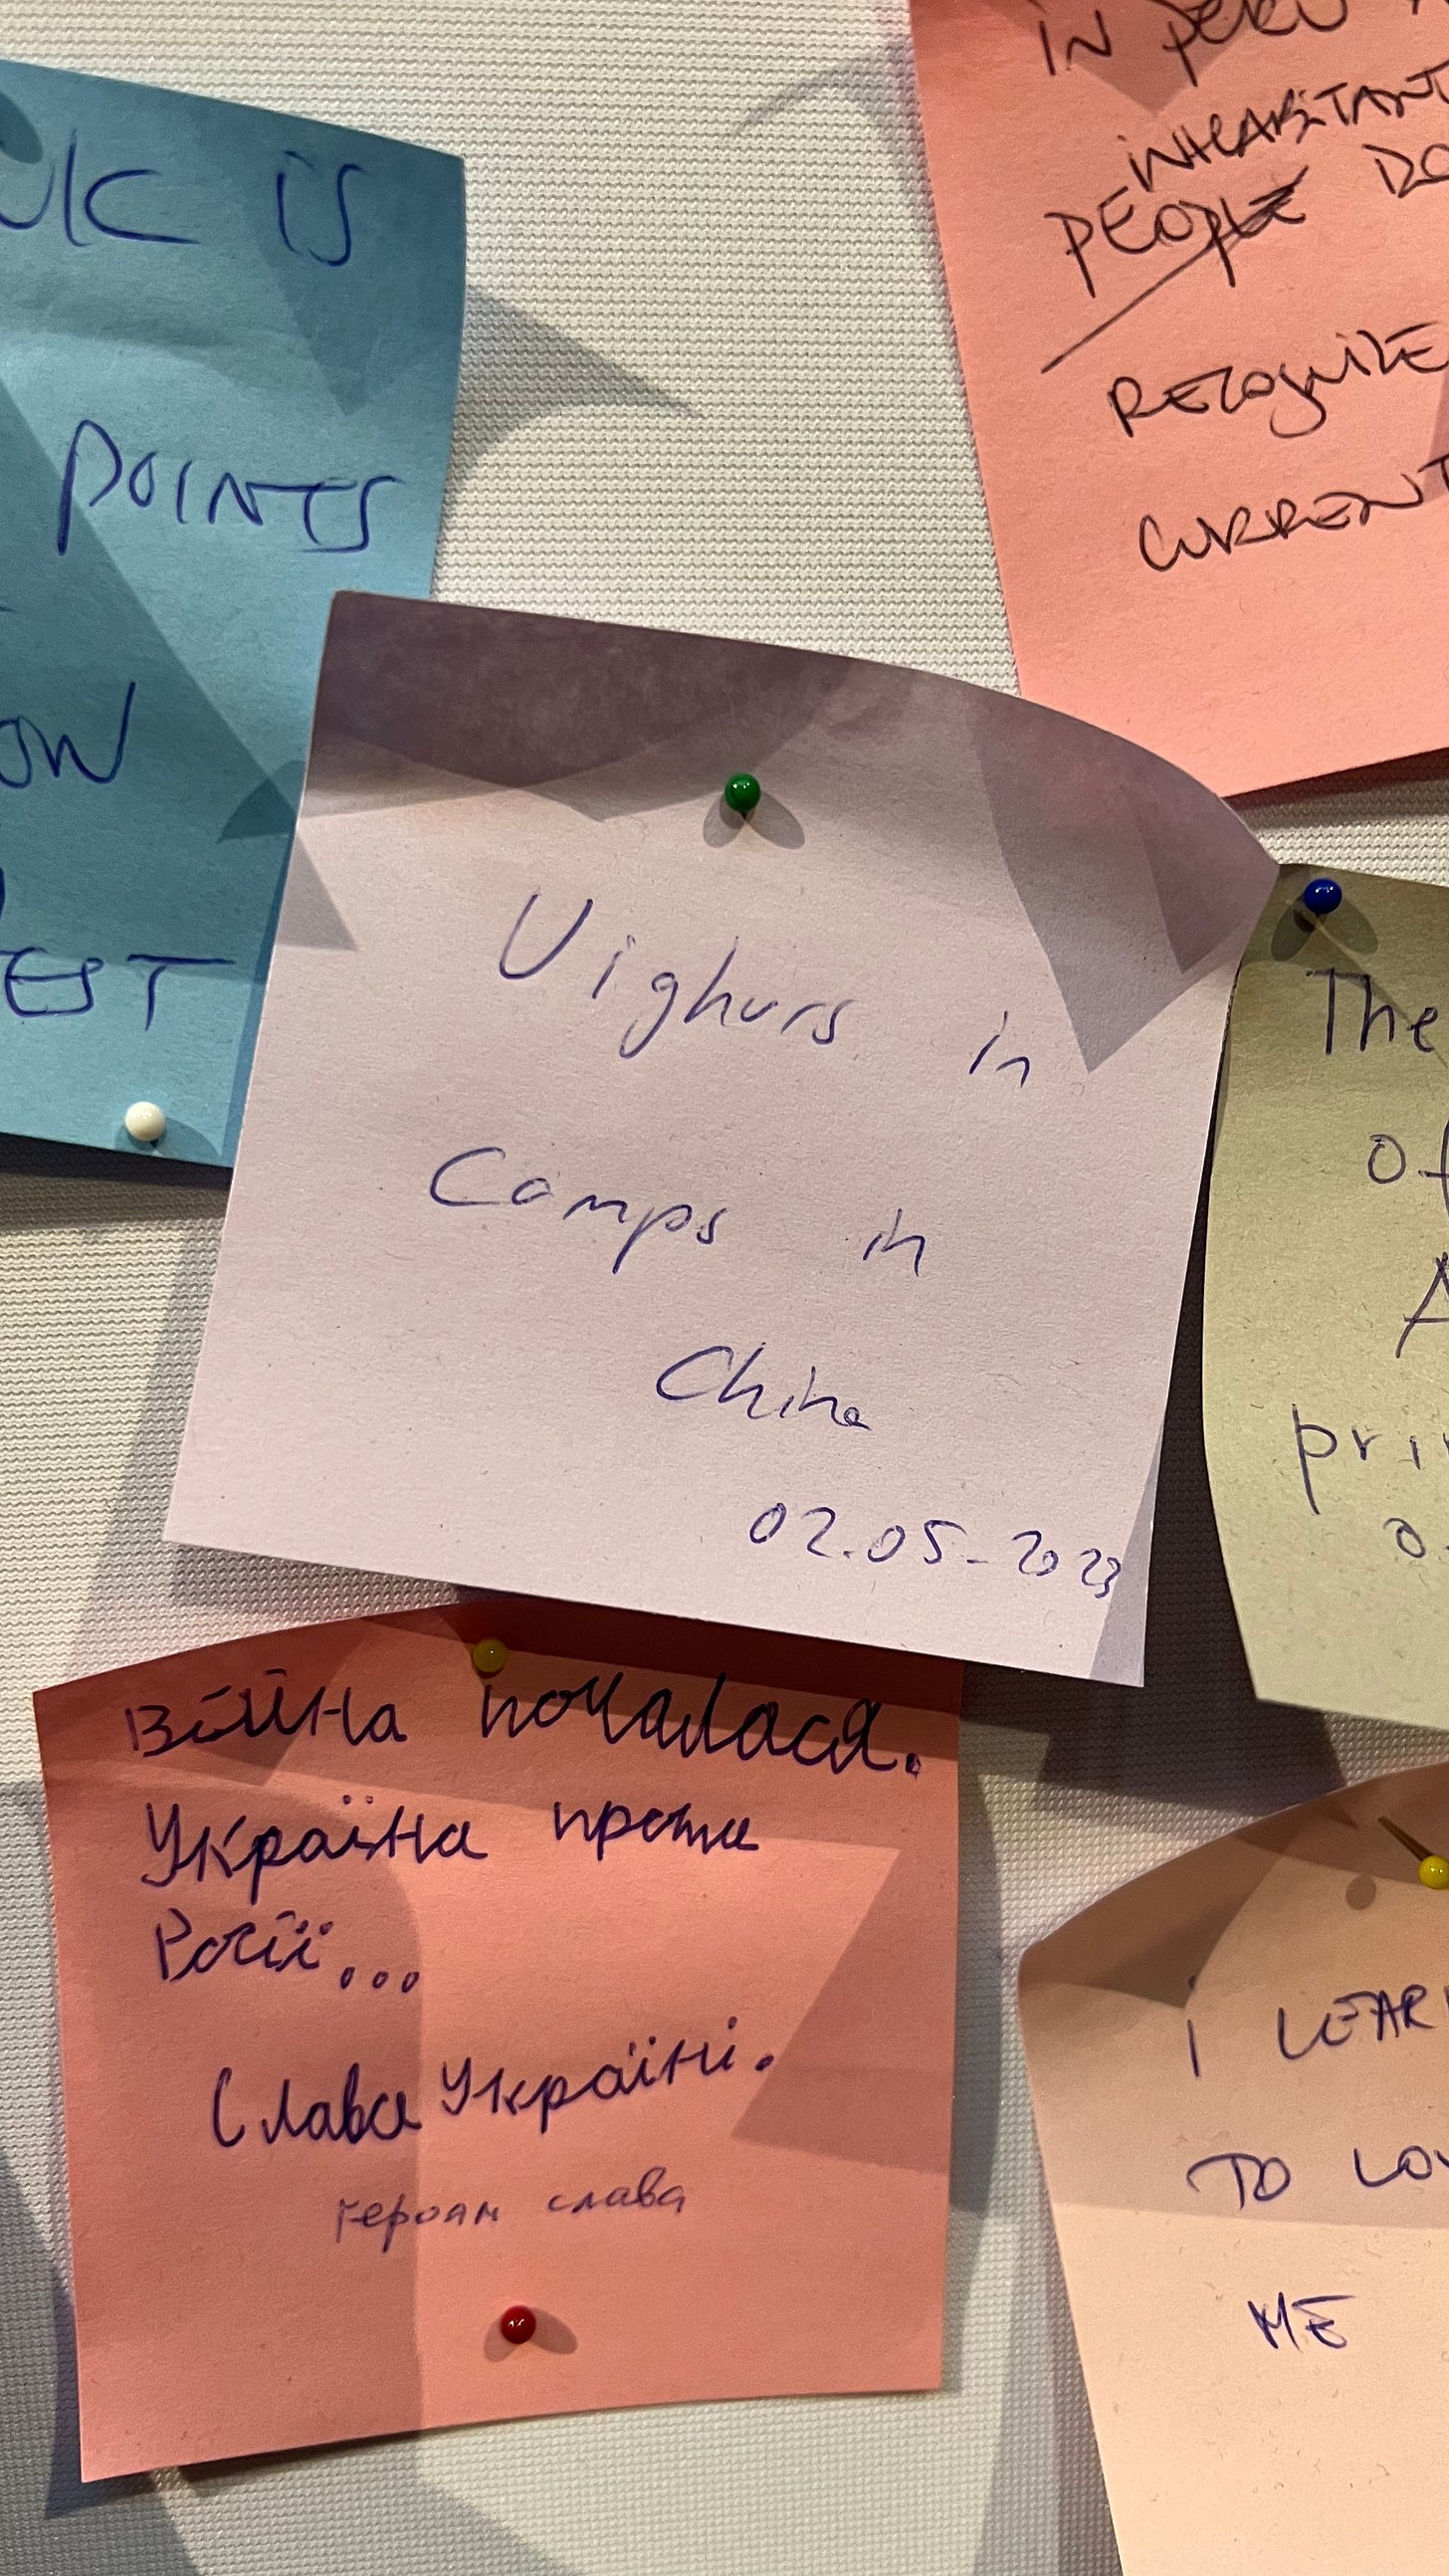 UK IS
POINTS
OW
EST
IN PERU
INHABITANT
PEOPLE DO
RECOGNIZE
CURRENT
Uighurs in
Camps in
China
02.05-2023
The
of
A
pri
o
Війна почалася.
Україна проти
Росії...
Слава Україні.
героям слава
I LEAR
TO LOV
ME